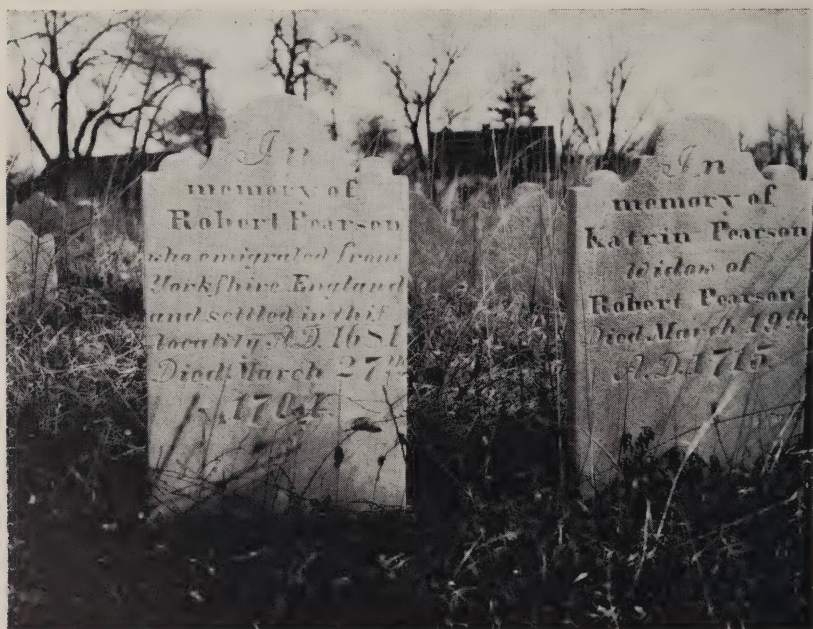 In
memory of
Robert Pearson
who emigrated from
Yorkshire England
and settled in this
locality A.D. 1681
Died March 27th
In
memory of
Katrin Pearson
Widow of
Robert Pearson
Died March 19th
A.D. 1715